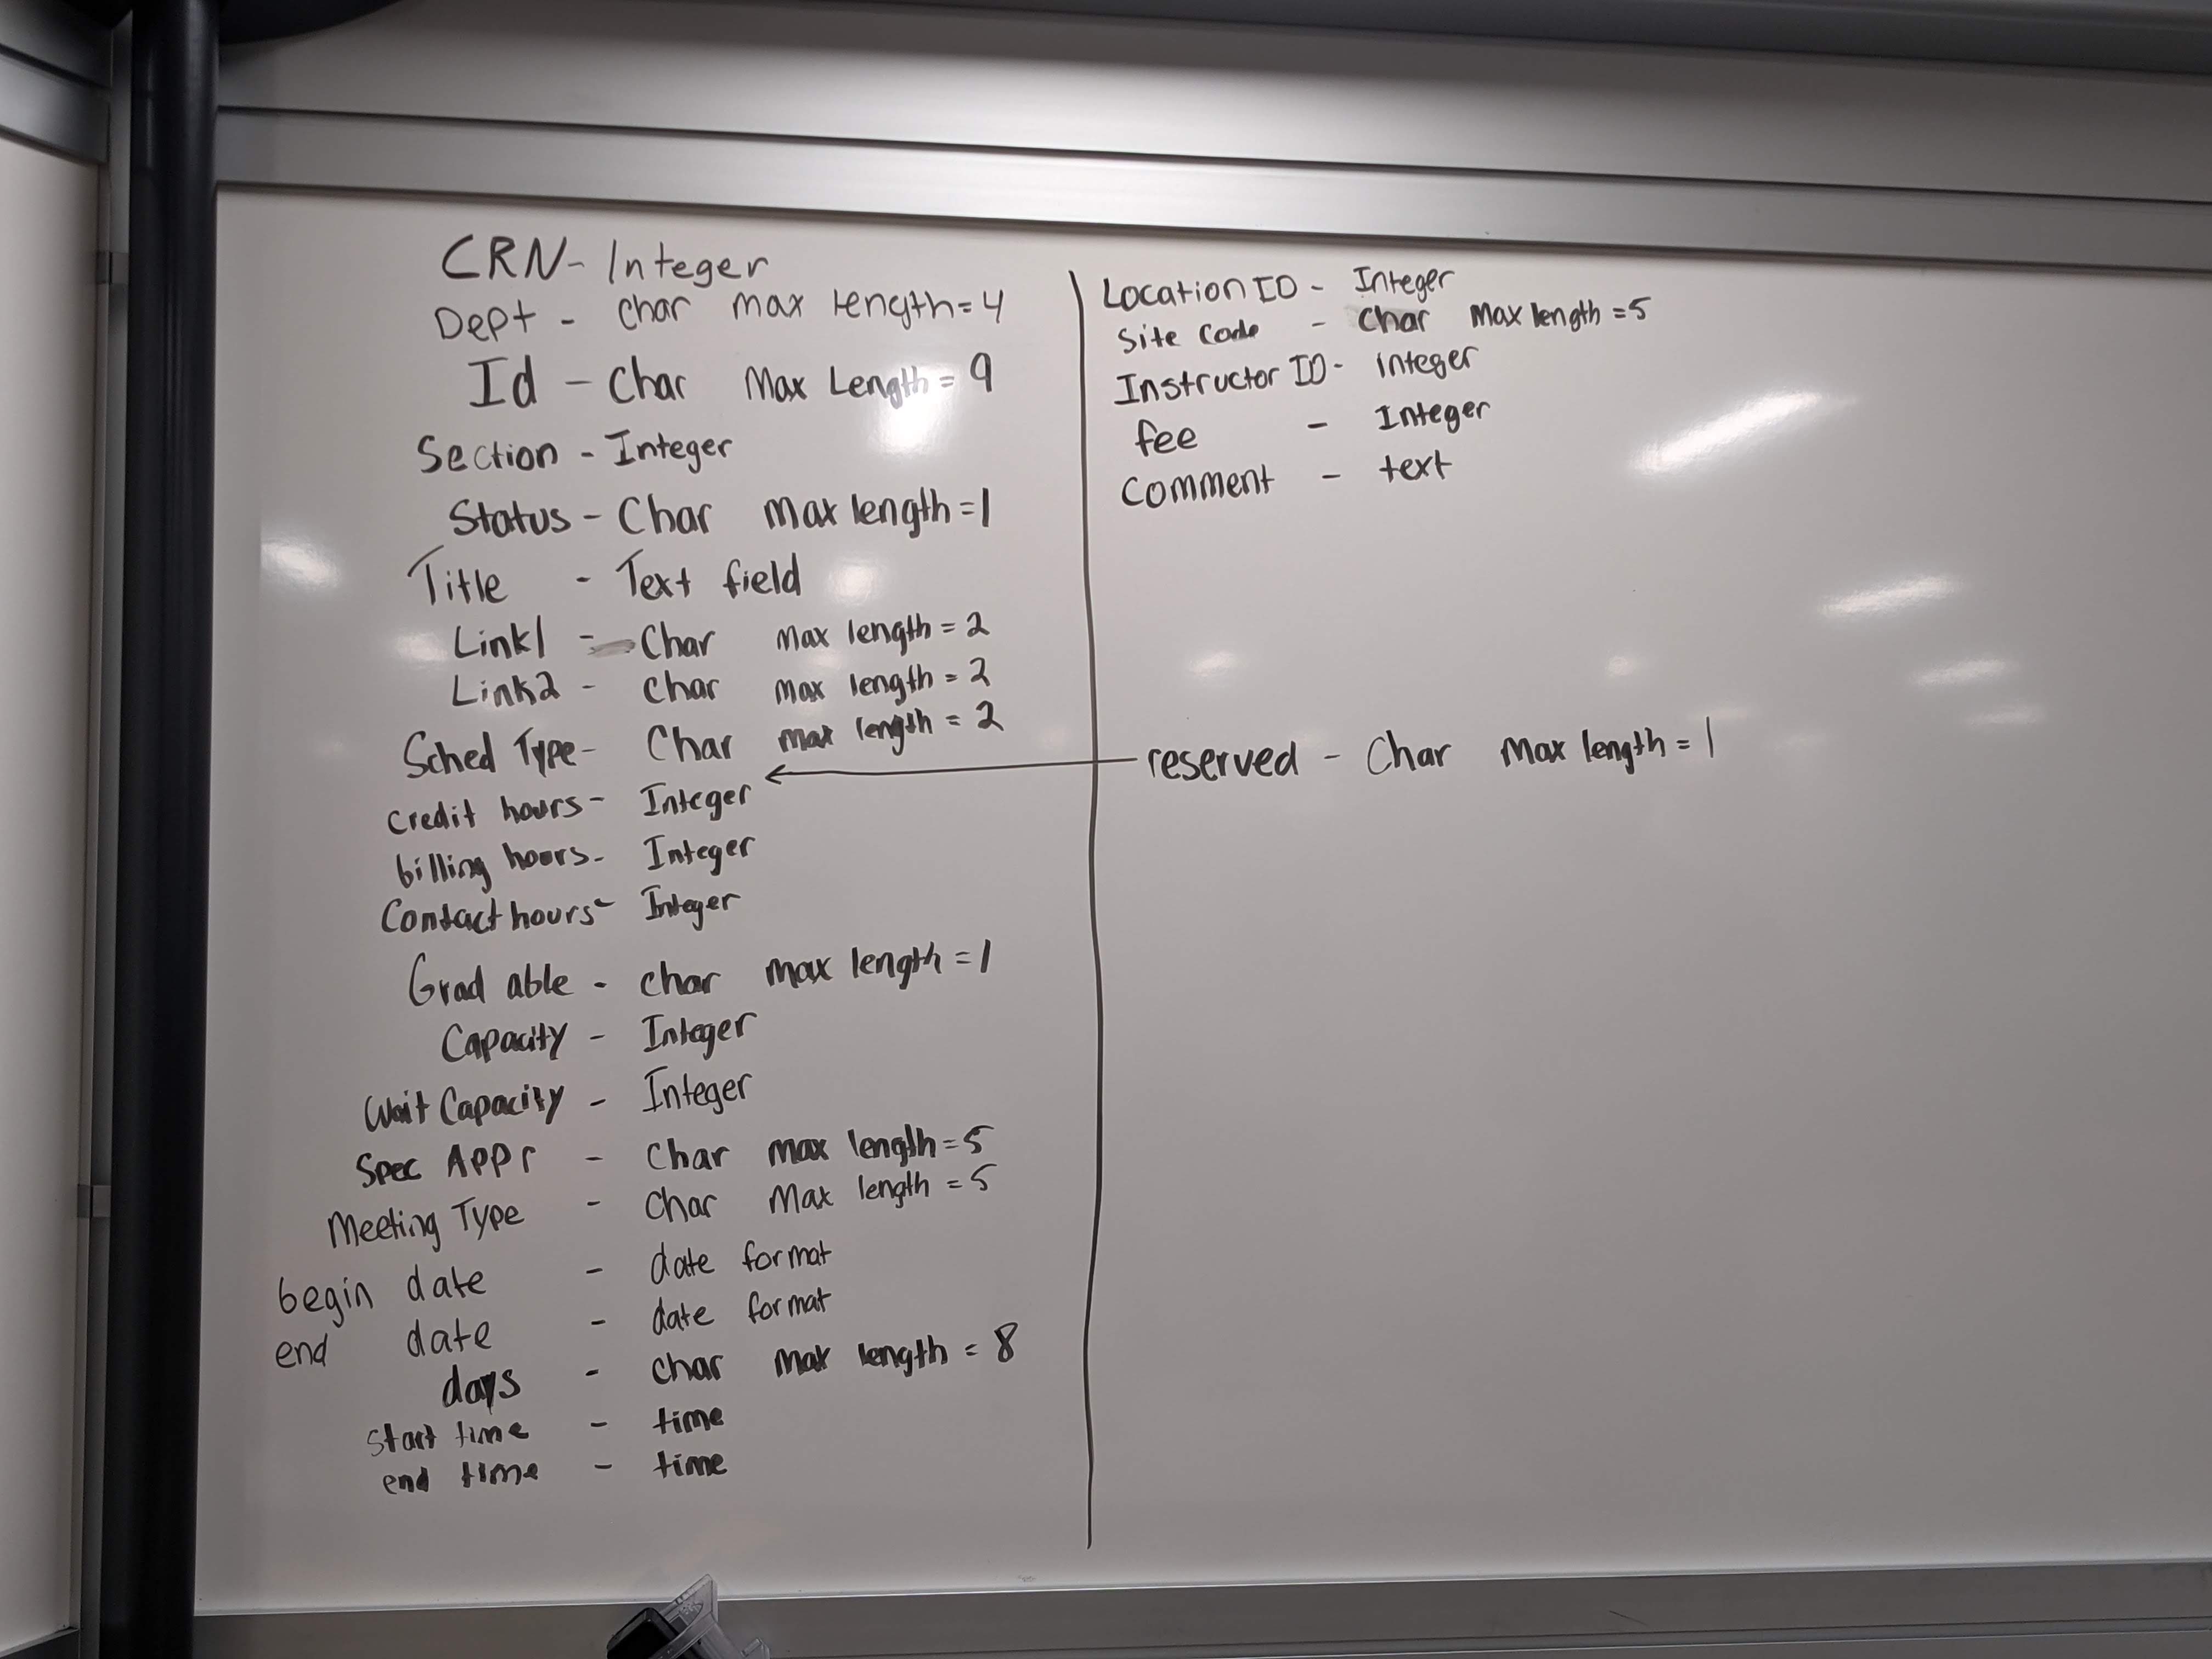 CRN - Integer
Dept - char max length = 4
Id - Char Max Length = 9
Section - Integer
Status - Char Max length = 1
Title - Text field
Link1 - Char Max length = 2
Link2 - Char Max length = 2
Sched Type - Char Max length = 2
credit hours - Integer
billing hours - Integer
Contact hours - Integer
Grad able - char max length = 1
Capacity - Integer
Wait Capacity - Integer
Spec Appr - Char Max length = 5
Meeting Type - Char Max length = 5
begin date - date format
end date - date format
days - char Max length = 8
start time - time
end time - time
Location ID - Integer
Site Code - Char Max length = 5
Instructor ID - integer
fee - Integer
Comment - text
reserved - Char Max length = 1